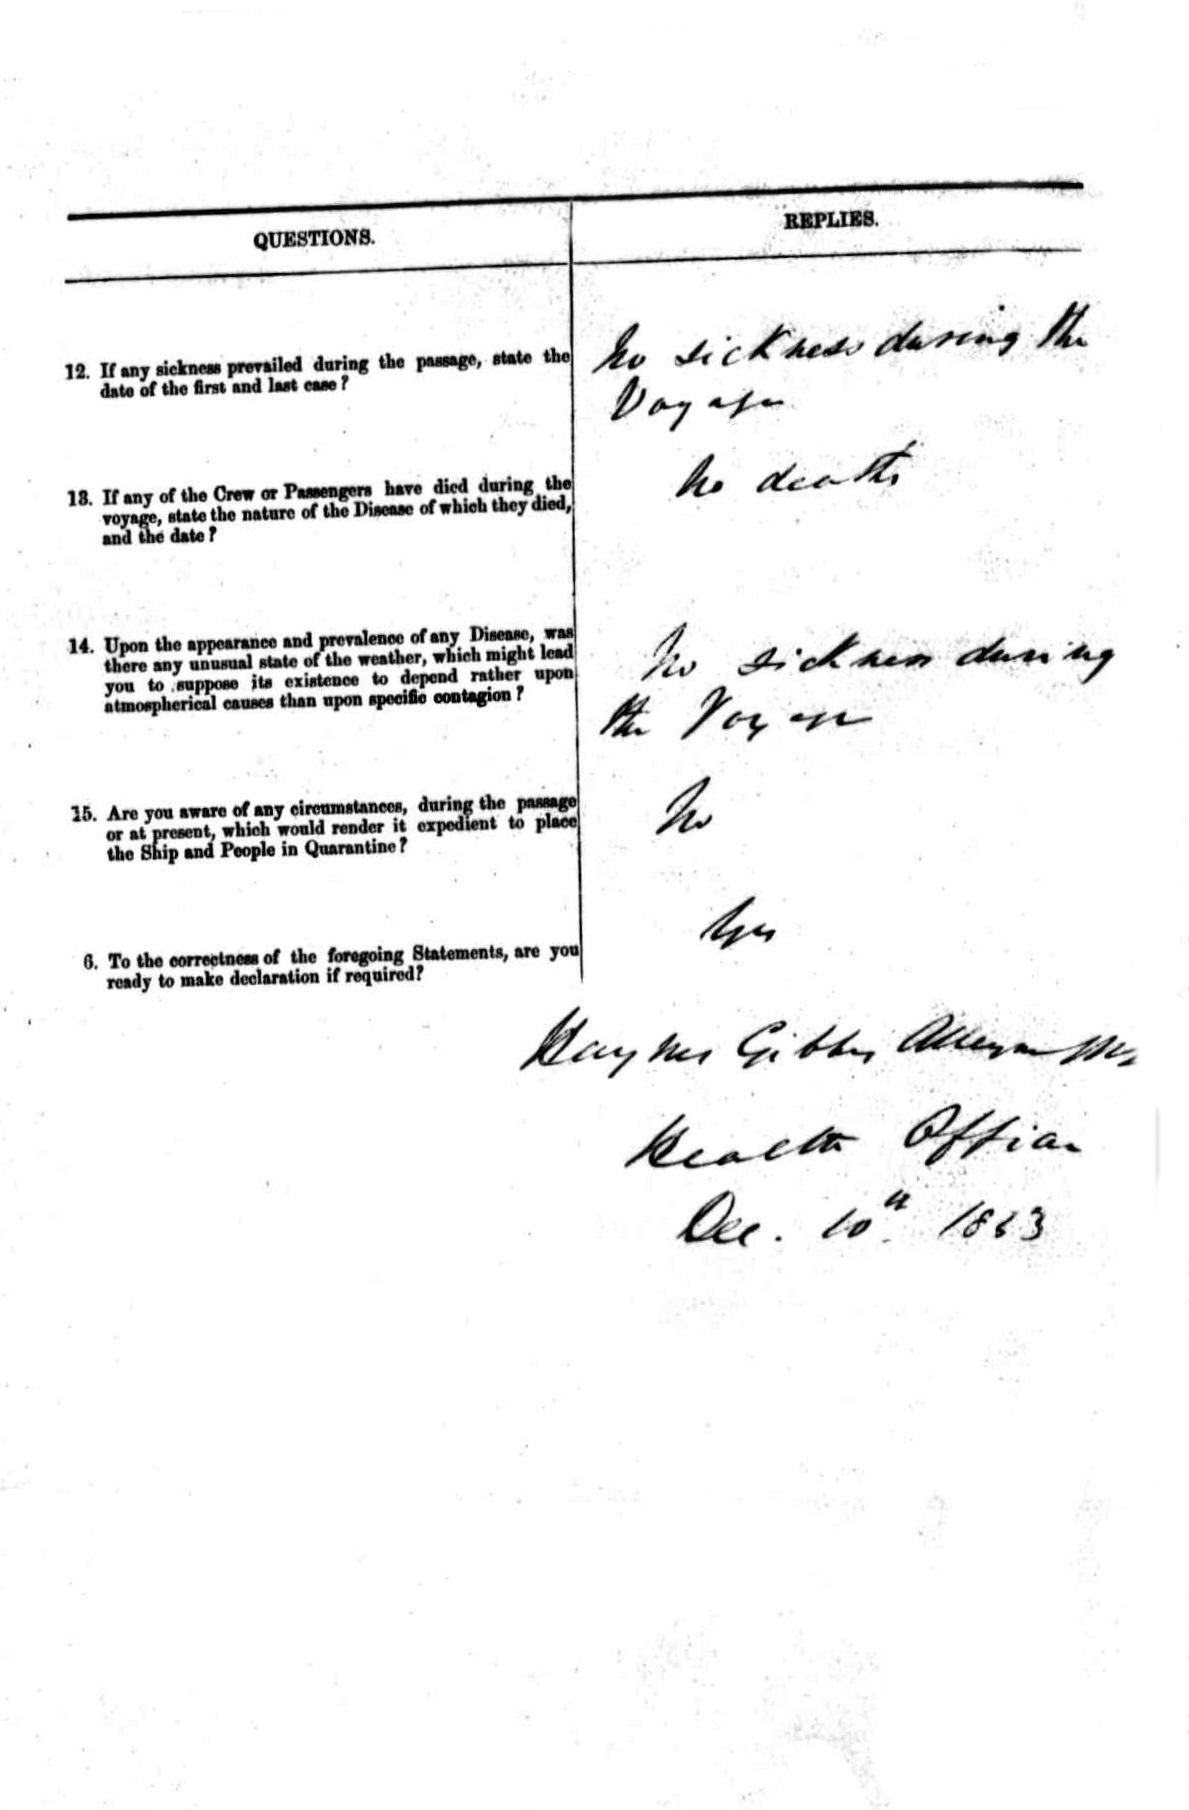 QUESTIONS.
REPLIES.
12. If any sickness prevailed during the passage, state the
date of the first and last case?
No sickness during the
Voyage
13. If any of the Crew or Passengers have died during the
voyage, state the nature of the Disease of which they died,
and the date?
No deaths
14. Upon the appearance and prevalence of any Disease, was
there any unusual state of the weather, which might lead
you to suppose its existence to depend rather upon
atmospherical causes than upon specific contagion?
No sickness during
the Voyage
15. Are you aware of any circumstances, during the passage
or at present, which would render it expedient to place
the Ship and People in Quarantine?
No
6. To the correctness of the foregoing Statements, are you
ready to make declaration if required?
Yes
Haynes Gibbes
Health Officer
Dec. 10th 1863